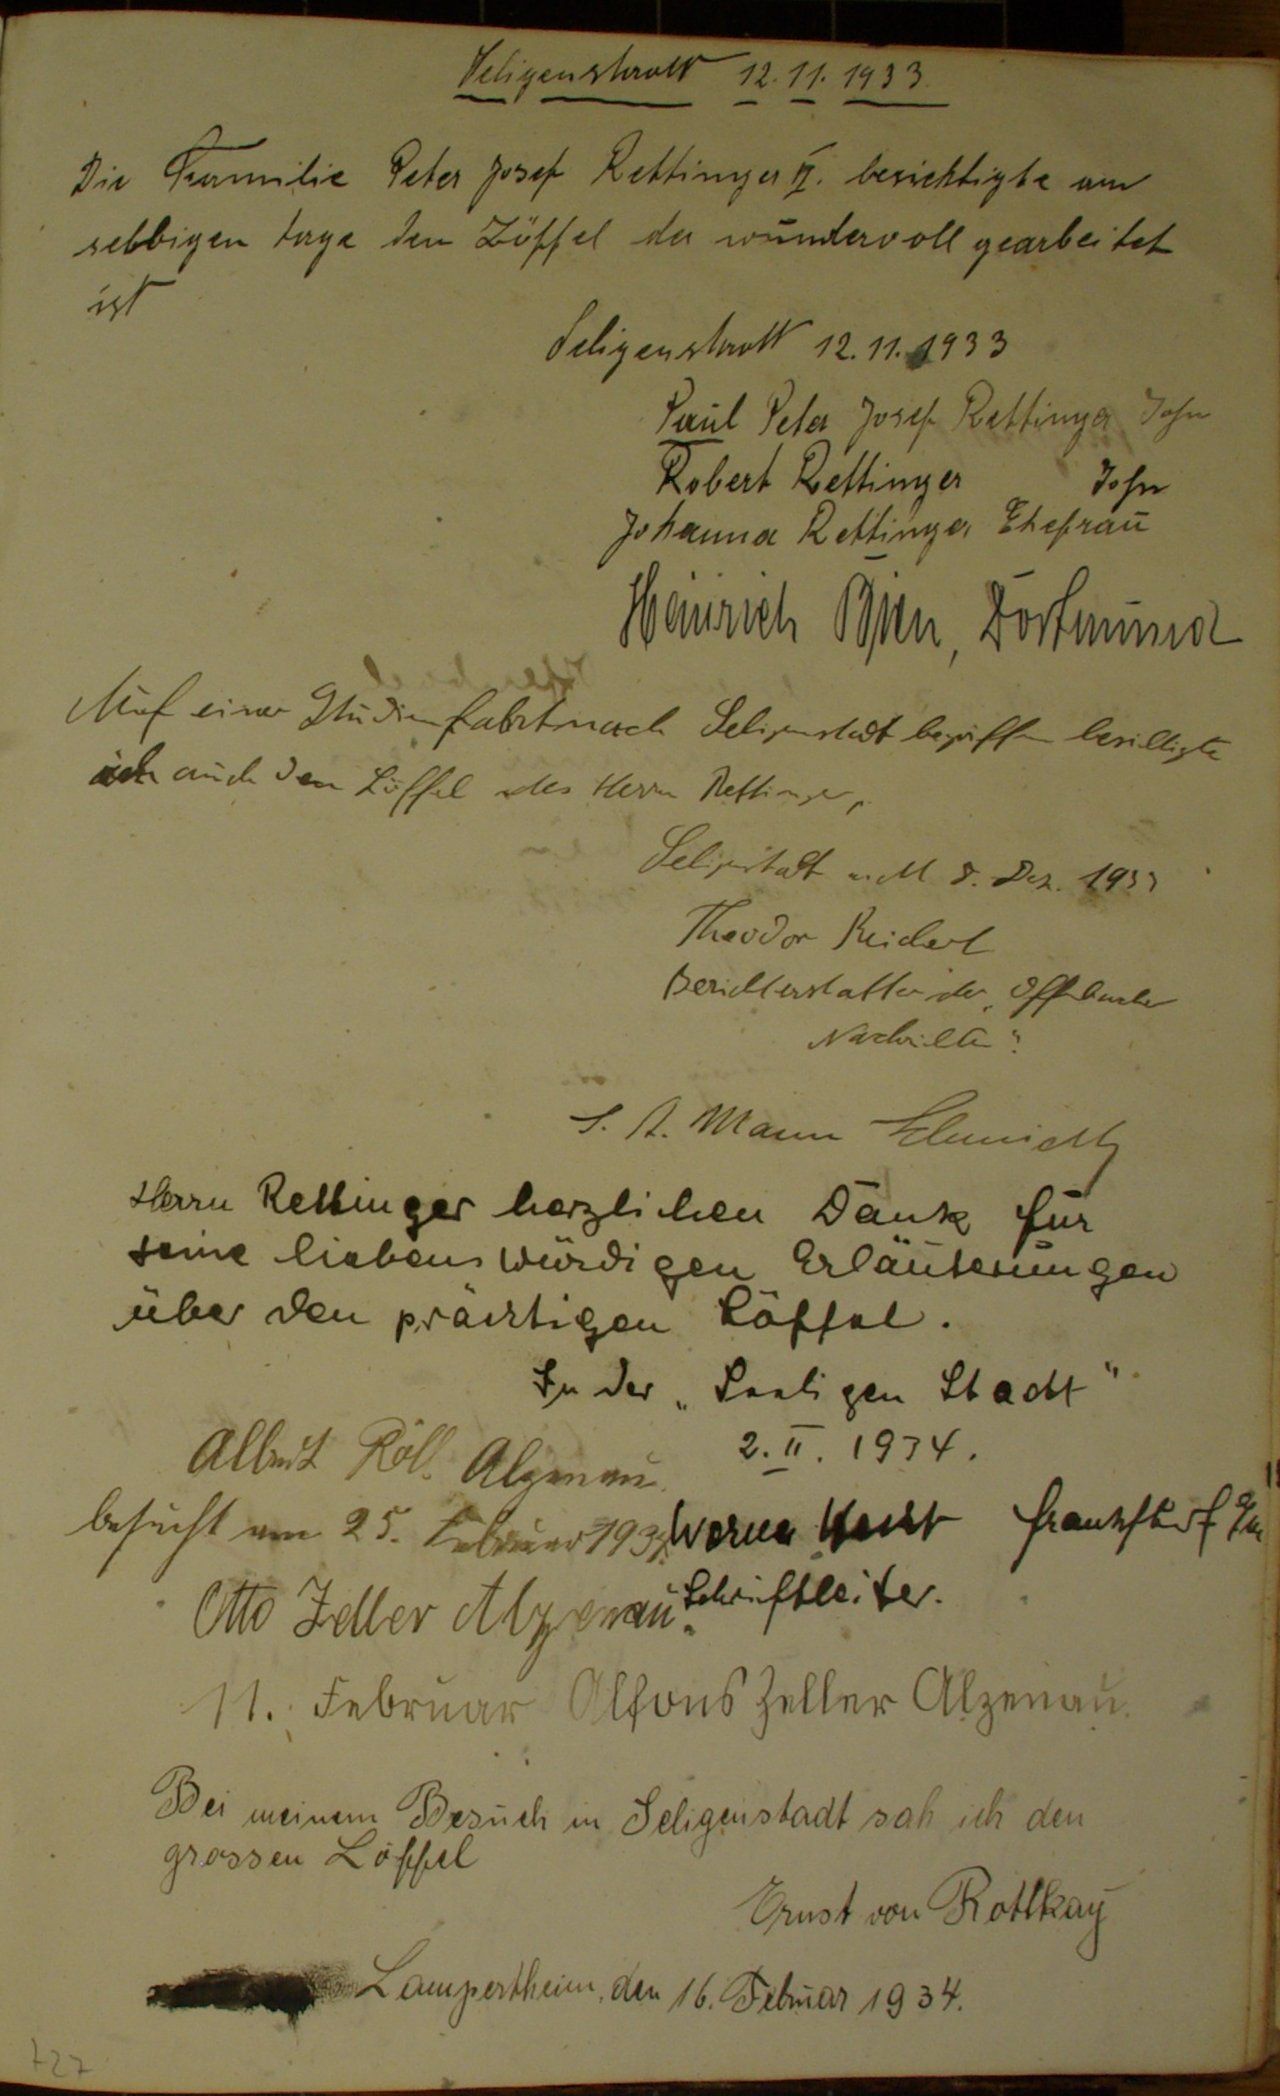 Seligenstadt 12.11.1933
Die Familie Peter Josef Rettinger II. besichtigte am
selbigen tage den Löffel der wundervoll gearbeitet
ist
Seligenstadt 12.11.1933
Paul Peter Josef Rettinger Sohn
Robert Rettinger Sohn
Johanna Rettinger Ehefrau
Heinrich Dortmund
Auf einer Studienfahrt nach Seligenstadt begriffen besichtigte
ich auch den Löffel des Herrn Rettinger,
Seligenstadt a. M 8. Dez. 1933
Theodor Reichert
Berichterstatter der „Offenbacher
Nachrichten".
S. A. Mann Schmidt
Herrn Rettinger herzlichen Dank für
seine liebenswürdigen Erläuterungen
über den prächtigen Löffel.
In der „Seeligen Stadt"
2. II. 1934.
Albert Röll Alzenau
besucht am 25. Februar 1934
Werner Frankfurt a/M
Schriftleiter.
Otto Zeller Alzenau.
11. Februar Alfons Zeller Alzenau.
Bei meinem Besuch in Seligenstadt sah ich den
grossen Löffel
Ernst von Rottkay
Lampertheim, den 16. Februar 1934.
127